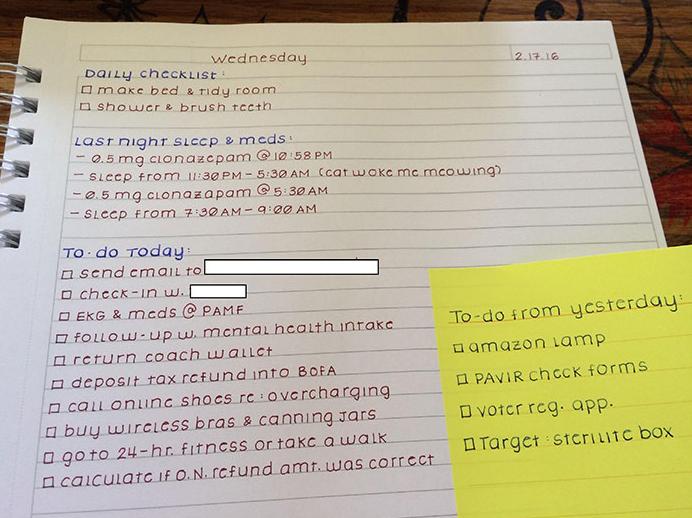 Wednesday
2.17.16
Daily checklist:
☐ make bed & tidy room
☐ shower & brush teeth
Last night sleep & meds:
- 0.5 mg clonazepam @ 10:58 PM
- sleep from 11:30 PM - 5:30 AM (cat woke me meowing)
- 0.5 mg clonazapam @ 5:30 AM
- sleep from 7:30 AM - 9:00 AM
To-do today:
☐ send email to
☐ check-in w.
☐ EKG & meds @ PAMF
☐ follow-up w. mental health intake
☐ return coach wallet
☐ deposit tax refund into BOFA
☐ call online shoes re: overcharging
☐ buy wireless bras & canning jars
☐ go to 24-hr. fitness or take a walk
☐ calculate if O.N. refund amt. was correct
To-do from yesterday:
☐ amazon lamp
☐ PAVIR check forms
☐ voter reg. app.
☐ Target: sterilite box